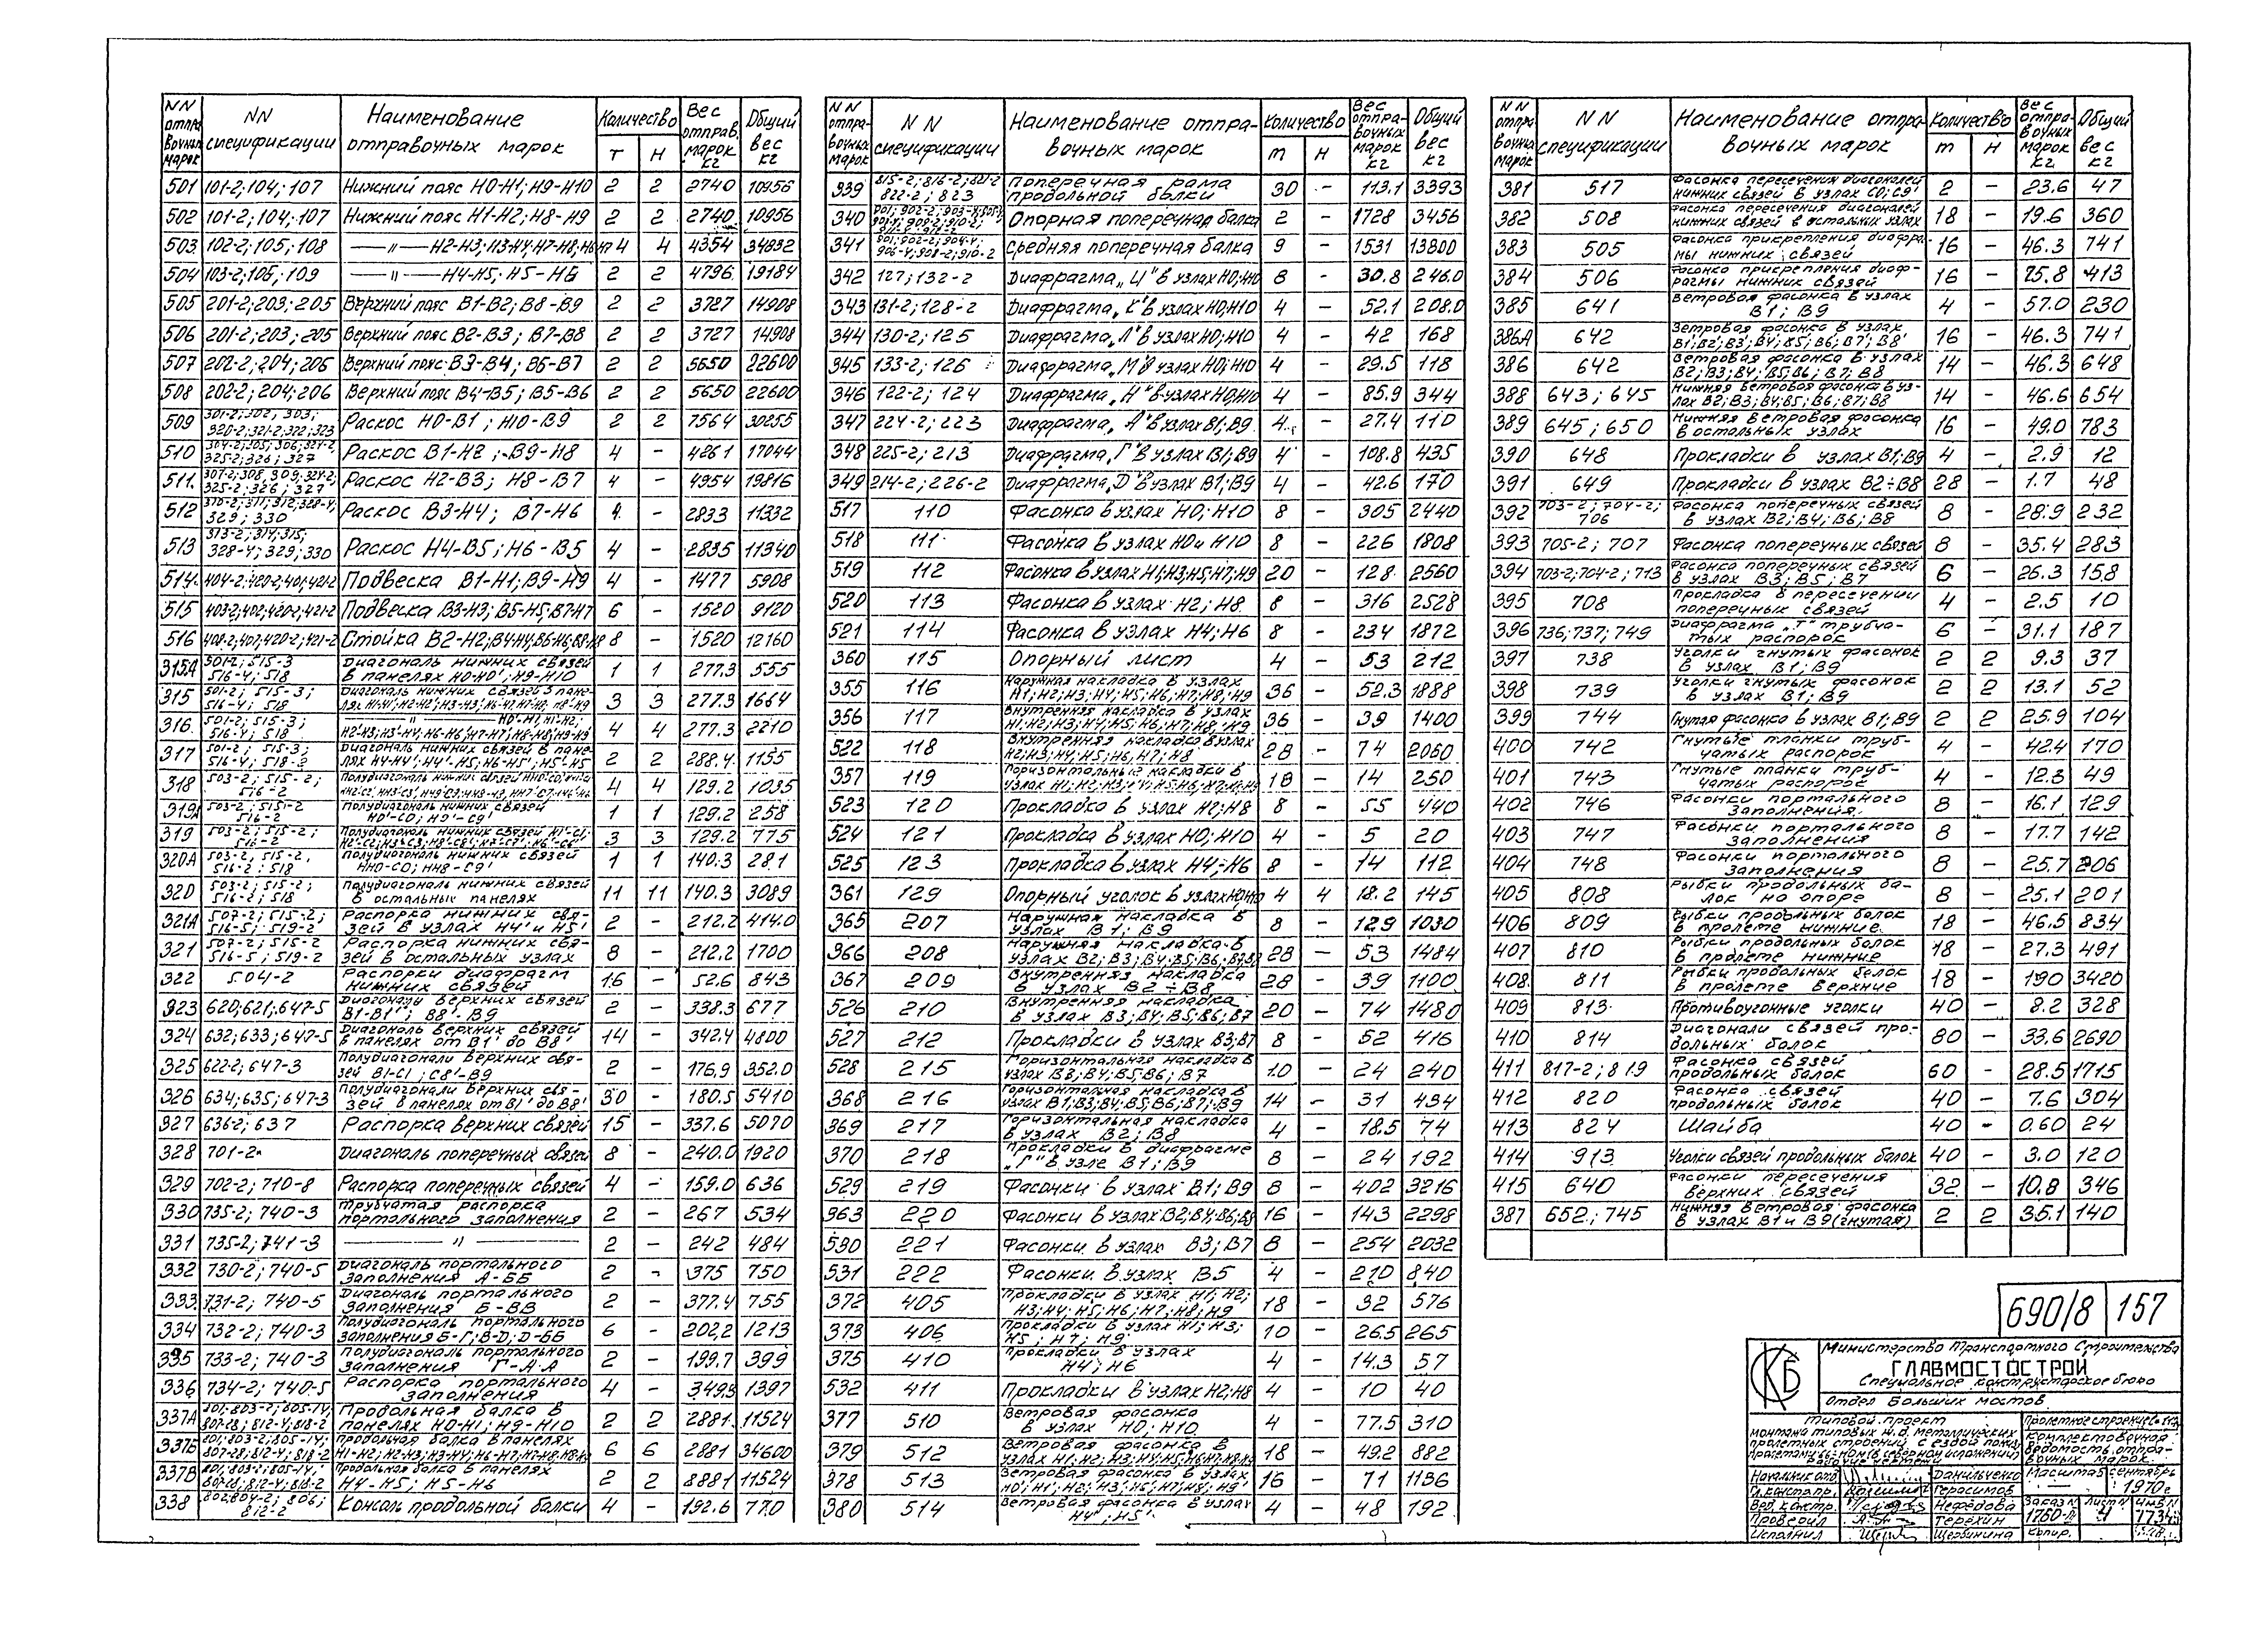 NN отправочных марок | NN спецификации | Наименование отправочных марок | Количество Т | Н | Вес отправ. марок кг | Общий вес кг
501 | 101-2; 104; 107 | Нижний пояс Н0-Н1; Н9-Н10 | 2 | 2 | 2740 | 10956
502 | 101-2; 104; 107 | Нижний пояс Н1-Н2; Н8-Н9 | 2 | 2 | 2740 | 10956
503 | 102-2; 105; 108 | —〃— Н2-Н3; Н3-Н4; Н7-Н8; Н6-Н7 | 4 | 4 | 4354 | 34832
504 | 103-2; 106; 109 | —〃— Н4-Н5; Н5-Н6 | 2 | 2 | 4796 | 19184
505 | 201-2; 203; 205 | Верхний пояс В1-В2; В8-В9 | 2 | 2 | 3727 | 14908
506 | 201-2; 203; 205 | Верхний пояс В2-В3; В7-В8 | 2 | 2 | 3727 | 14908
507 | 202-2; 204; 206 | Верхний пояс В3-В4; В6-В7 | 2 | 2 | 5650 | 22600
508 | 202-2; 204; 206 | Верхний пояс В4-В5; В5-В6 | 2 | 2 | 5650 | 22600
509 | 301-2; 302, 303; 320-2; 321-2; 322; 323 | Раскос Н0-В1; Н10-В9 | 2 | 2 | 7564 | 30255
510 | 304-2; 305; 306; 324-2; 325-2; 326; 327 | Раскос В1-Н2; В9-Н8 | 4 | - | 4261 | 17044
511 | 307-2; 308, 309; 324-2; 325-2; 326; 327 | Раскос Н2-В3; Н8-В7 | 4 | - | 4954 | 19816
512 | 310-2; 311; 312; 328-4; 329; 330 | Раскос В3-Н4; В7-Н6 | 4 | - | 2833 | 11332
513 | 313-2; 314; 315; 328-4; 329; 330 | Раскос Н4-В5; Н6-В5 | 4 | - | 2835 | 11340
514 | 404-2; 420-2; 401; 421-2 | Подвеска В1-Н1; В9-Н9 | 4 | - | 1477 | 5908
515 | 403-2; 402; 420-2; 421-2 | Подвеска В3-Н3; В5-Н5; В7-Н7 | 6 | - | 1520 | 9120
516 | 408-2; 407; 420-2; 421-2 | Стойка В2-Н2; В4-Н4; В6-Н6; В8-Н8 | 8 | - | 1520 | 12160
315А | 501-2; 515-3 516-4; 518 | Диагональ нижних связей в панелях Н0-Н0'; Н9-Н10 | 1 | 1 | 277.3 | 555
315 | 501-2; 515-3; 516-4; 518 | Диагональ нижних связей в панелях | 3 | 3 | 277.3 | 1664
316 | 501-2; 515-3; 516-4; 518 | —〃— | 4 | 4 | 277.3 | 2210
317 | 501-2; 515-3; 516-4; 518-2 | Диагональ нижних связей в панелях Н4-Н4'; Н4'-Н5; Н6-Н5'; Н5'-Н5 | 2 | 2 | 288.4 | 1155
318 | 503-2; 515-2; 516-2 | Полудиагональ нижних связей | 4 | 4 | 129.2 | 1035
319А | 503-2; 515-2 516-2 | Полудиагональ нижних связей Н0'-С0; Н9'-С9' | 1 | 1 | 129.2 | 258
319 | 503-2; 515-2; 516-2 | Полудиагональ нижних связей | 3 | 3 | 129.2 | 775
320А | 503-2; 515-2, 516-2; 518 | Полудиагональ нижних связей НН0-С0; НН8-С9' | 1 | 1 | 140.3 | 281
320 | 503-2; 515-2; 516-2; 518 | Полудиагональ нижних связей в остальных панелях | 11 | 11 | 140.3 | 3089
321А | 507-2; 515-2; 516-5; 519-2 | Распорка нижних связей в узлах Н4' и Н5' | 2 | - | 212.2 | 414.0
321 | 507-2; 515-2 516-5; 519-2 | Распорка нижних связей в остальных узлах | 8 | - | 212.2 | 1700
322 | 504-2 | Распорки диафрагм нижних связей | 16 | - | 52.6 | 843
323 | 620; 621; 647-5 | Диагонали верхних связей В1-В1'; В8'-В9 | 2 | - | 338.3 | 677
324 | 632; 633; 647-5 | Диагональ верхних связей в панелях от В1' до В8' | 14 | - | 342.4 | 4800
325 | 622-2; 647-3 | Полудиагонали верхних связей В1-С1; С8'-В9 | 2 | - | 176.9 | 352.0
326 | 634; 635; 647-3 | Полудиагонали верхних связей в панелях от В1' до В8' | 30 | - | 180.5 | 5410
327 | 636-2; 637 | Распорка верхних связей | 15 | - | 337.6 | 5070
328 | 701-2 | Диагональ поперечных связей | 8 | - | 240.0 | 1920
329 | 702-2; 710-8 | Распорка поперечных связей | 4 | - | 159.0 | 636
330 | 735-2; 740-3 | Трубчатая распорка портального заполнения | 2 | - | 267 | 534
331 | 735-2; 741-3 | —〃— | 2 | - | 242 | 484
332 | 730-2; 740-5 | Диагональ портального заполнения А-ББ | 2 | - | 375 | 750
333 | 731-2; 740-5 | Диагональ портального заполнения Б-ВВ | 2 | - | 377.4 | 755
334 | 732-2; 740-3 | Полудиагональ портального заполнения Б-Г; В-D; D-ББ | 6 | - | 202.2 | 1213
335 | 733-2; 740-3 | Полудиагональ портального заполнения Г-АА | 2 | - | 199.7 | 399
336 | 734-2; 740-5 | Распорка портального заполнения | 4 | - | 349.3 | 1397
337А | 801; 803-2; 805-14; 807-28; 812-4; 818-2 | Продольная балка в панелях Н0-Н1; Н9-Н10 | 2 | 2 | 2881 | 11524
337Б | 801; 803-2; 805-14; 807-28; 812-4; 818-2 | Продольная балка в панелях Н1-Н2; Н2-Н3; Н3-Н4; Н6-Н7; Н7-Н8; Н8-Н9 | 6 | 6 | 2881 | 34600
337В | 801; 803-2; 805-14; 807-28; 812-4; 818-2 | Продольная балка в панелях Н4-Н5; Н5-Н6 | 2 | 2 | 2881 | 11524
338 | 802; 804-2; 806; 812-2 | Консоль продольной балки | 4 | - | 192.6 | 770
NN отправочных марок | NN спецификации | Наименование отправочных марок | Количество т | Н | Вес отправочных марок кг | Общий вес кг
339 | 815-2; 816-2; 821-2 822-2; 823 | Поперечная рама продольной балки | 30 | - | 113.1 | 3393
340 | Опорная поперечная балка | 2 | - | 1728 | 3456
341 | 901; 902-2; 904-4; 906-4; 908-2; 910-2 | Средняя поперечная балка | 9 | - | 1531 | 13800
342 | 127; 132-2 | Диафрагма „И" в узлах Н0; Н10 | 8 | - | 30.8 | 246.0
343 | 131-2; 128-2 | Диафрагма „К" в узлах Н0; Н10 | 4 | - | 52.1 | 208.0
344 | 130-2; 125 | Диафрагма „Л" в узлах Н0; Н10 | 4 | - | 42 | 168
345 | 133-2; 126 | Диафрагма „М" в узлах Н0; Н10 | 4 | - | 29.5 | 118
346 | 122-2; 124 | Диафрагма „Н" в узлах Н0; Н10 | 4 | - | 85.9 | 344
347 | 224-2; 223 | Диафрагма „А" в узлах В1; В9 | 4 | - | 27.4 | 110
348 | 225-2; 213 | Диафрагма „Г" в узлах В1; В9 | 4 | - | 108.8 | 435
349 | 214-2; 226-2 | Диафрагма „D" в узлах В1; В9 | 4 | - | 42.6 | 170
517 | 110 | Фасонка в узлах Н0; Н10 | 8 | - | 305 | 2440
518 | 111 | Фасонка в узлах Н0 и Н10 | 8 | - | 226 | 1808
519 | 112 | Фасонка в узлах Н1; Н3; Н5; Н7; Н9 | 20 | - | 128 | 2560
520 | 113 | Фасонка в узлах Н2; Н8 | 8 | - | 316 | 2528
521 | 114 | Фасонка в узлах Н4; Н6 | 8 | - | 234 | 1872
360 | 115 | Опорный лист | 4 | - | 53 | 212
355 | 116 | Наружная накладка в узлах Н1; Н2; Н3; Н4; Н5; Н6; Н7; Н8; Н9 | 36 | - | 52.3 | 1888
356 | 117 | Внутренняя накладка в узлах Н1; Н2; Н3; Н4; Н5; Н6; Н7; Н8; Н9 | 36 | - | 39 | 1400
522 | 118 | Внутренняя накладка в узлах Н2; Н3; Н4; Н5; Н6; Н7; Н8 | 28 | - | 74 | 2060
357 | 119 | Горизонтальные накладки в узлах Н1; Н2; Н3; Н4; Н5; Н6; Н7; Н8; Н9 | 18 | - | 14 | 250
523 | 120 | Прокладка в узлах Н2; Н8 | 8 | - | 55 | 440
524 | 121 | Прокладка в узлах Н0; Н10 | 4 | - | 5 | 20
525 | 123 | Прокладка в узлах Н4; Н6 | 8 | - | 14 | 112
361 | 129 | Опорный уголок в узлах Н0; Н10 | 4 | 4 | 18.2 | 145
365 | 207 | Наружная накладка в узлах В1; В9 | 8 | - | 129 | 1030
366 | 208 | Наружняя накладка в узлах В2; В3; В4; В5; В6; В7; В8 | 28 | - | 53 | 1484
367 | 209 | Внутренняя накладка в узлах В2÷В8 | 28 | - | 39 | 1100
526 | 210 | Внутренняя накладка в узлах В3; В4; В5; В6; В7 | 20 | - | 74 | 1480
527 | 212 | Прокладки в узлах В3; В7 | 8 | - | 52 | 416
528 | 215 | Горизонтальная накладка в узлах В3; В4; В5; В6; В7 | 10 | - | 24 | 240
368 | 216 | Горизонталная накладка в узлах В1; В3; В4; В5; В6; В7; В9 | 14 | - | 31 | 434
369 | 217 | Горизонтальная накладка в узлах В2; В8 | 4 | - | 18.5 | 74
370 | 218 | Прокладки в диафрагме „Г" в узле В1; В9 | 8 | - | 24 | 192
529 | 219 | Фасонки в узлах В1; В9 | 8 | - | 402 | 3216
363 | 220 | Фасонки в узлах В2; В4; В6; В8 | 16 | - | 143 | 2298
530 | 221 | Фасонки в узлах В3; В7 | 8 | - | 254 | 2032
531 | 222 | Фасонки в узлах В5 | 4 | - | 210 | 840
372 | 405 | Прокладки в узлах Н1; Н2; Н3; Н4; Н5; Н6; Н7; Н8; Н9 | 18 | - | 32 | 576
373 | 406 | Прокладки в узлах Н1; Н3; Н5; Н7; Н9 | 10 | - | 26.5 | 265
375 | 410 | Прокладки в узлах Н4; Н6 | 4 | - | 14.3 | 57
532 | 411 | Прокладки в узлах Н2; Н8 | 4 | - | 10 | 40
377 | 510 | Ветровая фасонка в узлах Н0; Н10 | 4 | - | 77.5 | 310
379 | 512 | Ветровая фасонка в узлах Н1; Н2; Н3; Н4; Н5; Н6; Н7; Н8; Н9 | 18 | - | 49.2 | 882
378 | 513 | Ветровая фасонка в узлах Н0'; Н1'; Н2'; Н3'; Н6'; Н7'; Н8'; Н9' | 16 | - | 71 | 1136
380 | 514 | Ветровая фасонка в узлах Н4'; Н5' | 4 | - | 48 | 192
NN отправочных марок | NN спецификации | Наименование отправочных марок | Количество т | Н | Вес отправочных марок кг | Общий вес кг
381 | 517 | Фасонка пересечения диагоналей нижних связей в узлах С0; С9' | 2 | - | 23.6 | 47
382 | 508 | Фасонка пересечения диагоналей нижних связей в остальных узлах | 18 | - | 19.6 | 360
383 | 505 | Фасонка прикрепления диафрамы нижних связей | 16 | - | 46.3 | 741
384 | 506 | Фасонка прикрепления диафрагмы нижних связей | 16 | - | 25.8 | 413
385 | 641 | Ветровая фасонка в узлах В1; В9 | 4 | - | 57.0 | 230
386А | 642 | Ветровая фасонка в узлах В1'; В2'; В3'; В4'; В5'; В6'; В7'; В8' | 16 | - | 46.3 | 741
386 | 642 | Ветровая фасонка в узлах В2; В3; В4; В5; В6; В7; В8 | 14 | - | 46.3 | 648
388 | 643; 645 | Нижняя ветровая фасонка в узлах В2; В3; В4; В5; В6; В7; В8 | 14 | - | 46.6 | 654
389 | 645; 650 | Нижняя ветровая фасонка в остальных узлах | 16 | - | 49.0 | 783
390 | 648 | Прокладки в узлах В1; В9 | 4 | - | 2.9 | 12
391 | 649 | Прокладки в узлах В2÷В8 | 28 | - | 1.7 | 48
392 | 703-2; 704-2; 706 | Фасонка поперечных связей в узлах В2; В4; В6; В8 | 8 | - | 28.9 | 232
393 | 705-2; 707 | Фасонка поперечных связей | 8 | - | 35.4 | 283
394 | 703-2; 704-2; 713 | Фасонка поперечных связей в узлах В3; В5; В7 | 6 | - | 26.3 | 158
395 | 708 | Прокладка в пересечении поперечных связей | 4 | - | 2.5 | 10
396 | 736; 737; 749 | Диафрагма „Т" трубчатых распорок | 6 | - | 31.1 | 187
397 | 738 | Уголки гнутых фасонок в узлах В1; В9 | 2 | 2 | 9.3 | 37
398 | 739 | Уголки гнутых фасонок в узлах В1; В9 | 2 | 2 | 13.1 | 52
399 | 744 | Гнутая фасонка в узлах В1; В9 | 2 | 2 | 25.9 | 104
400 | 742 | Гнутые планки трубчатых распорок | 4 | - | 42.4 | 170
401 | 743 | Гнутые планки трубчатых распорок | 4 | - | 12.3 | 49
402 | 746 | Фасонки портального заполнения | 8 | - | 16.1 | 129
403 | 747 | Фасонки портального заполнения | 8 | - | 17.7 | 142
404 | 748 | Фасонки портального заполнения | 8 | - | 25.7 | 206
405 | 808 | Рыбки продольных балок на опоре | 8 | - | 25.1 | 201
406 | 809 | Рыбки продольных балок в пролете нижние | 18 | - | 46.5 | 834
407 | 810 | Рыбки продольных балок в пролете нижние | 18 | - | 27.3 | 491
408 | 811 | Рыбки продольных балок в пролете верхние | 18 | - | 190 | 3420
409 | 813 | Противоугонные уголки | 40 | - | 8.2 | 328
410 | 814 | Диагонали связей продольных балок | 80 | - | 33.6 | 2690
411 | 817-2; 819 | Фасонка связей продольных балок | 60 | - | 28.5 | 1715
412 | 820 | Фасонка связей продольных балок | 40 | - | 7.6 | 304
413 | 824 | Шайба | 40 | - | 0.60 | 24
414 | 913 | Уголки связей продольных балок | 40 | - | 3.0 | 120
415 | 640 | Фасонки пересечения верхних связей | 32 | - | 10.8 | 346
387 | 652; 745 | Нижняя ветровая фасонка в узлах В1 и В9 (гнутая) | 2 | 2 | 35.1 | 140
690/8 | 157
СКБ
Министерство Транспортного Строительства
ГЛАВМОСТОСТРОЙ
Специальное конструкторское бюро
Отдел Больших мостов
Типовой проект
монтажа типовых ж.д. металлических
пролетных строений с ездой понизу
Рабочие чертежи
Пролетное строение
Комплектовочная
ведомость отпра-
вочных марок.
Начальник отд. | Данильченко | Масштаб | сентябрь
Гл. констр. | Герасимов | — | 1970г
Вед. констр. | Нефёдова | Заказ N | Лист N | Инв N
Проверил | Терёхин | 4
Исполнил | Щербинина | Копир.